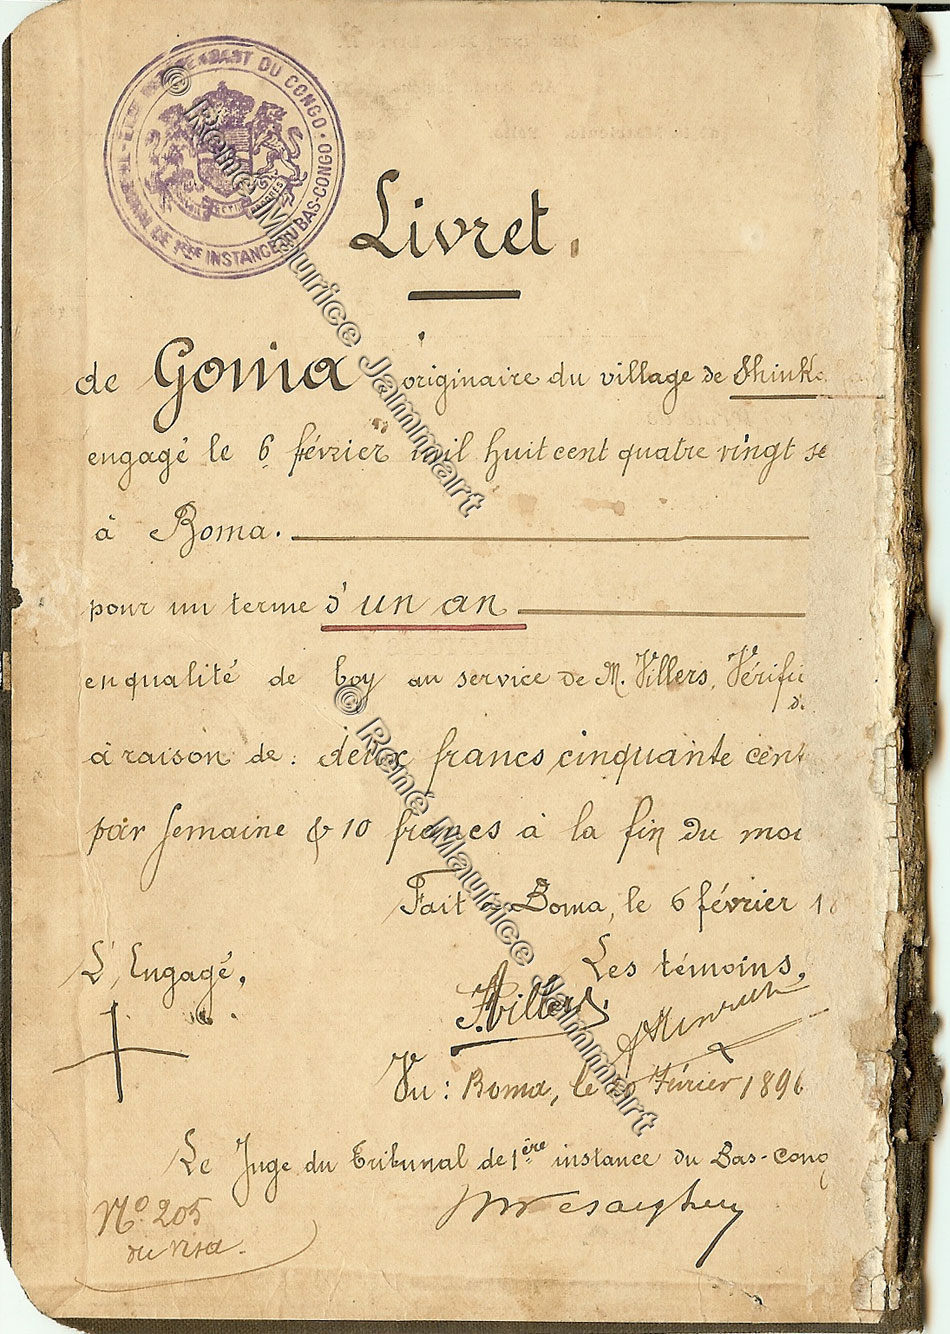 ÉTAT INDÉPENDANT DU CONGO
TRIBUNAL DE 1ÈRE INSTANCE DU BAS-CONGO
Livret.
de Goma originaire du village de Shinka
engagé le 6 février mil huit cent quatre vingt se
à Boma.
pour un terme d'un an
en qualité de boy au service de M. Villers, Vérifi
d
à raison de : deux francs cinquante cent
par semaine & 10 francs à la fin du moi
Fait à Boma, le 6 février 18
L'Engagé.
Les témoins.
Villers
Vu : Boma, le Février 1896
Le Juge du Tribunal de 1ère instance du Bas-Cong
No. 205
du visa.
© René Maurice Jammart
© René Maurice Jammart